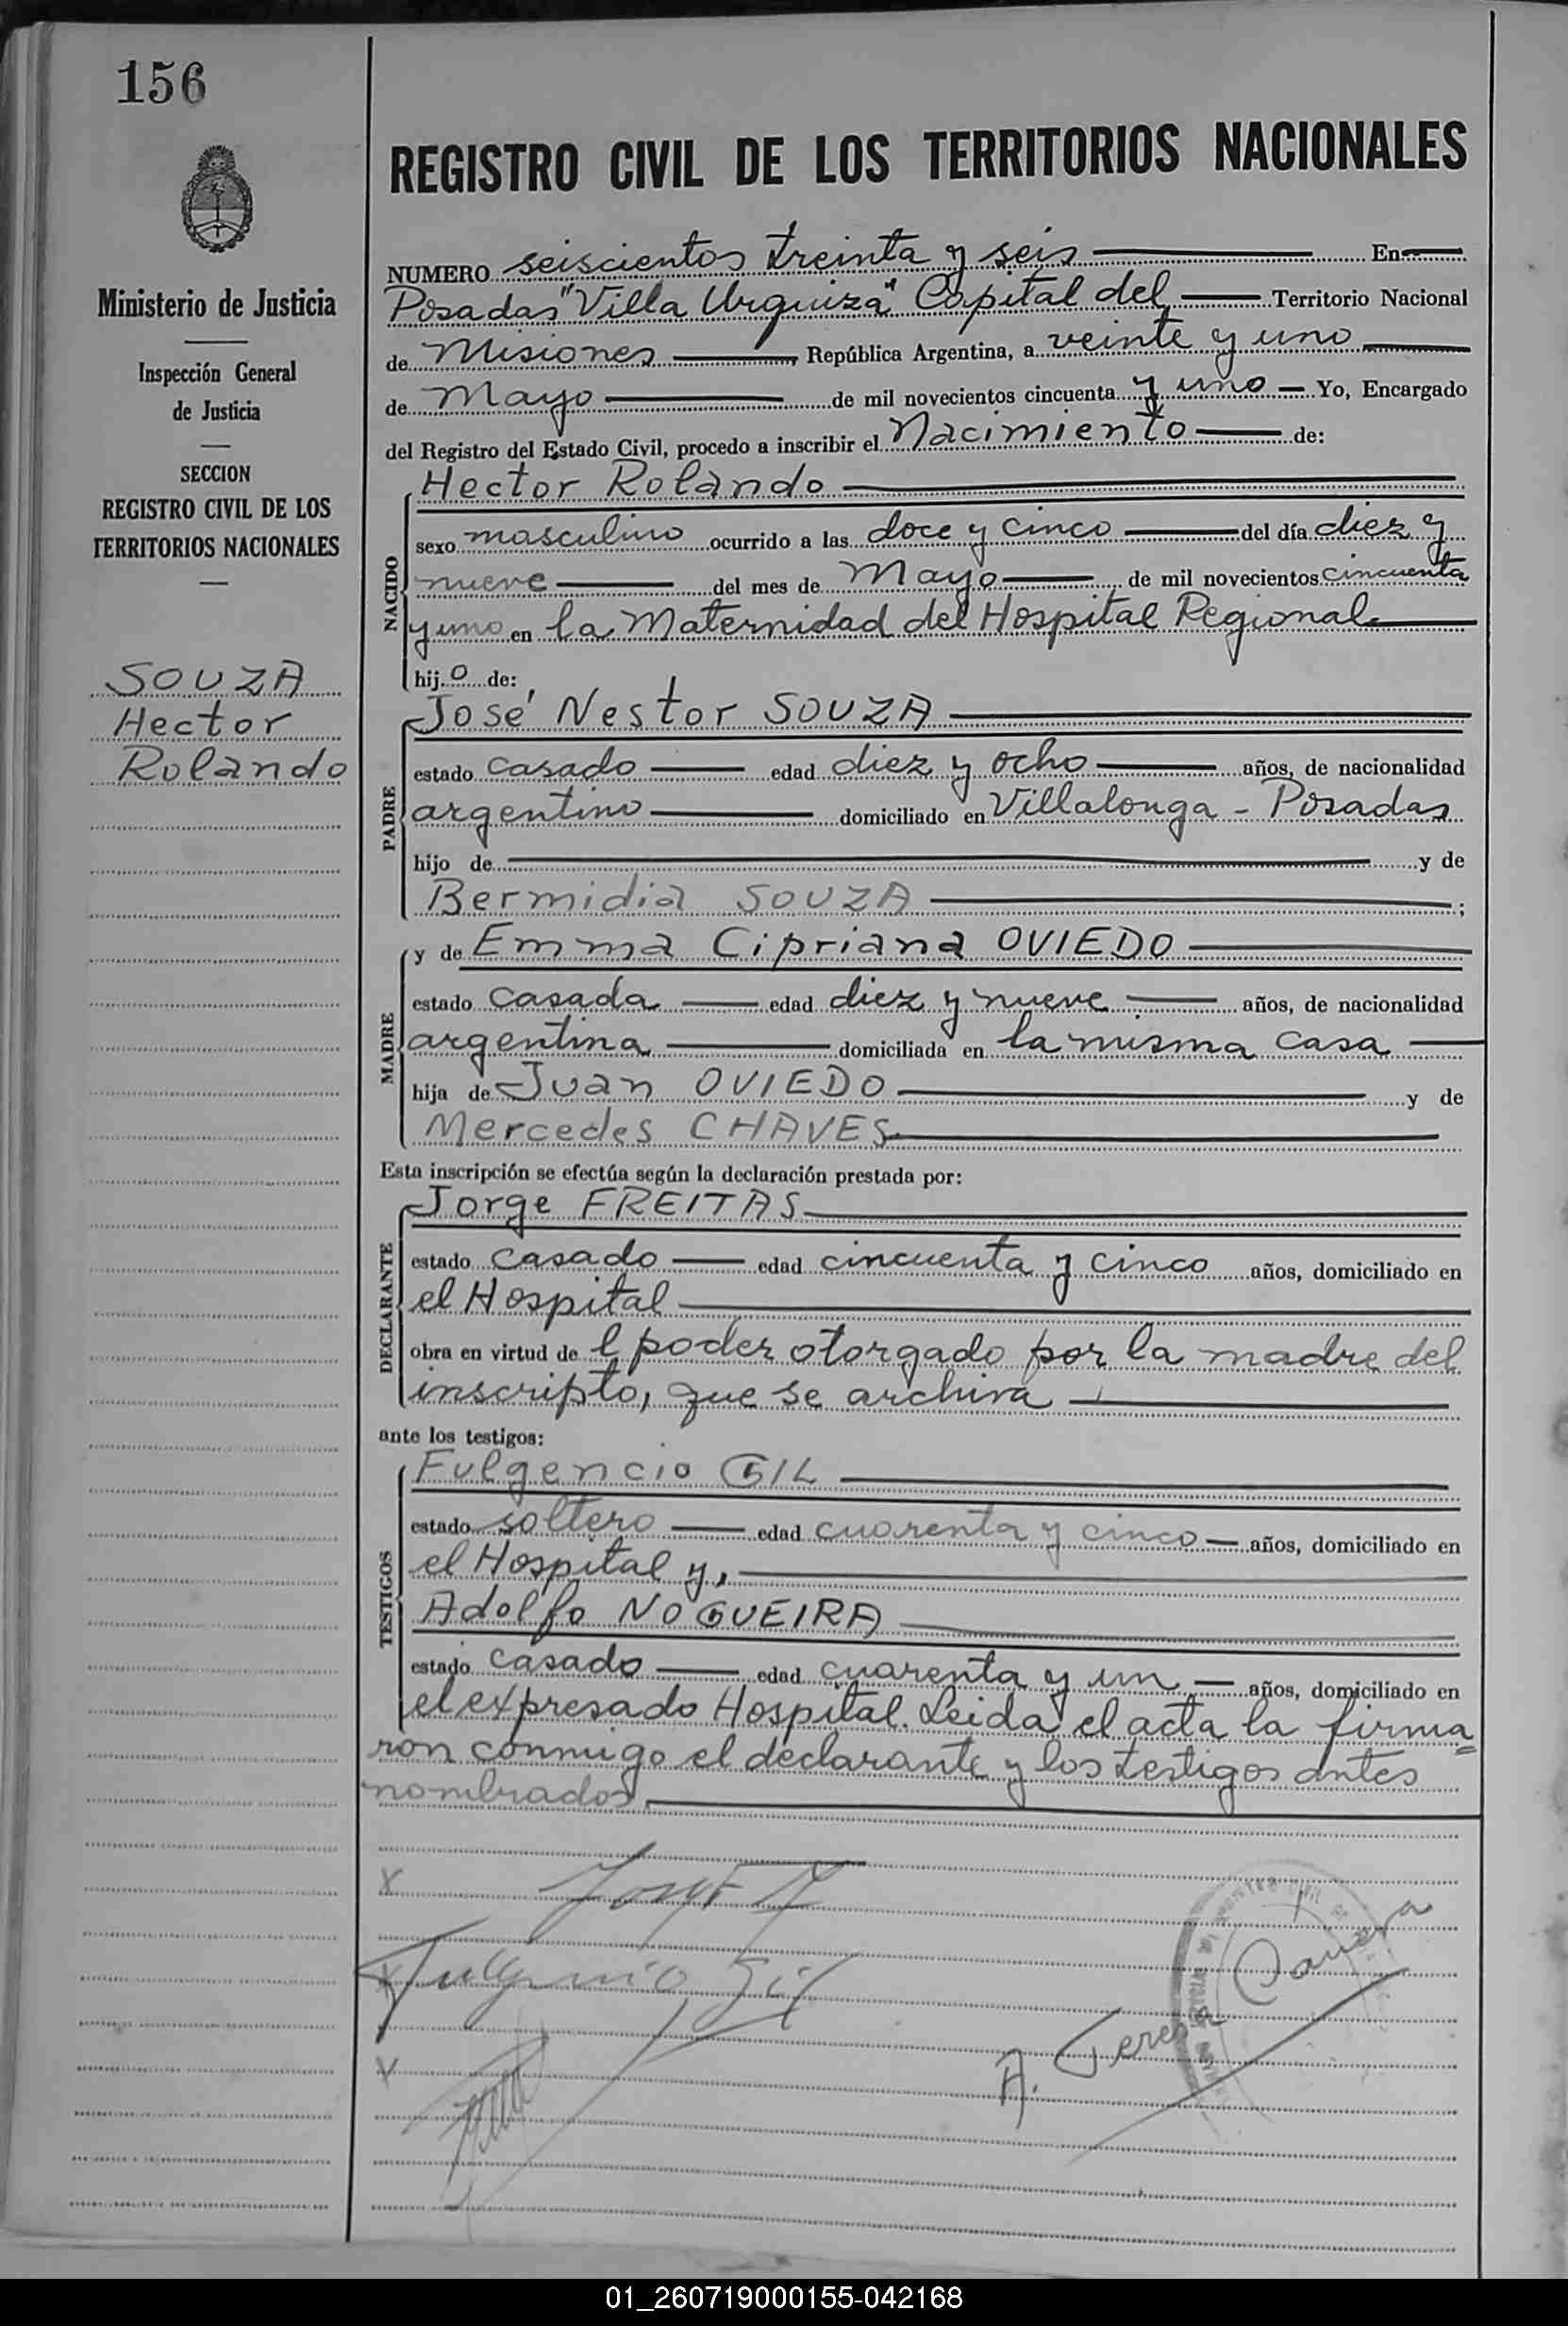 156
Ministerio de Justicia
Inspección General
de Justicia
SECCION
REGISTRO CIVIL DE LOS
TERRITORIOS NACIONALES
SOUZA
Hector
Rolando
REGISTRO CIVIL DE LOS TERRITORIOS NACIONALES
NUMERO seiscientos treinta y seis En
Posadas "Villa Urquiza" Capital del Territorio Nacional
de Misiones, República Argentina, a veinte y uno
de Mayo de mil novecientos cincuenta y uno Yo, Encargado
del Registro del Estado Civil, procedo a inscribir el Nacimiento de:
NACIDO
Hector Rolando
sexo masculino ocurrido a las doce y cinco del día diez y
nueve del mes de Mayo de mil novecientos cincuenta
y uno en la Maternidad del Hospital Regional
hijo de:
PADRE
José Nestor SOUZA
estado casado edad diez y ocho años, de nacionalidad
argentino domiciliado en Villalonga - Posadas
hijo de y de
Bermidia SOUZA;
MADRE
y de Emma Cipriana OVIEDO
estado casada edad diez y nueve años, de nacionalidad
argentina domiciliada en la misma casa
hija de Juan OVIEDO y de
Mercedes CHAVES
Esta inscripción se efectúa según la declaración prestada por:
DECLARANTE
Jorge FREITAS
estado casado edad cincuenta y cinco años, domiciliado en
el Hospital
obra en virtud de l poder otorgado por la madre del
inscripto, que se archiva
ante los testigos:
TESTIGOS
Fulgencio GIL
estado soltero edad cuarenta y cinco años, domiciliado en
el Hospital y,
Adolfo NOGUEIRA
estado casado edad cuarenta y un años, domiciliado en
el expresado Hospital. Leida el acta la firma=
ron conmigo el declarante y los testigos antes
nombrados.
x
Fulgencio Gil
A. Teresa
01_260719000155-042168